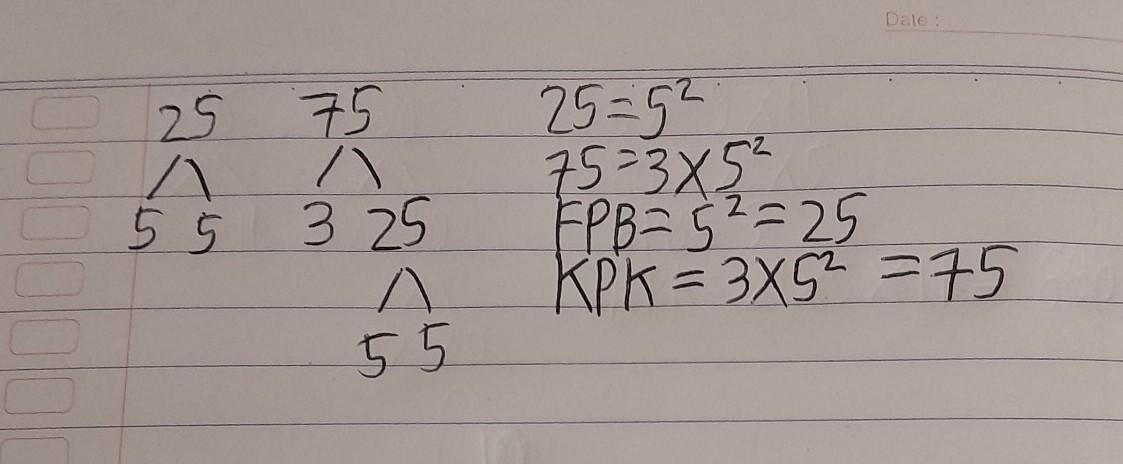 Date :
25 75
5 5 3 25
5 5
25=5²
75=3×5²
FPB=5²=25
KPK=3×5²=75